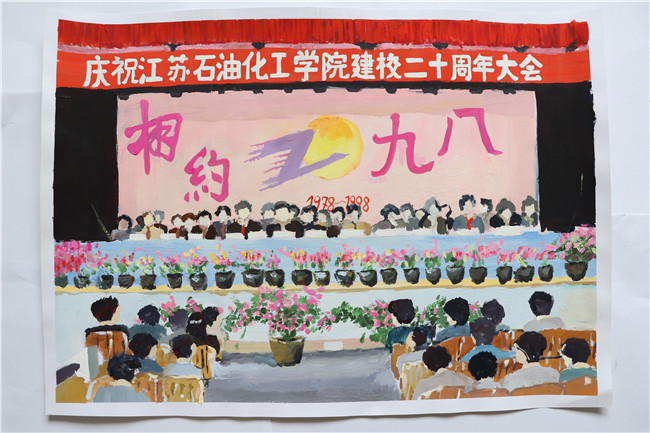 庆祝江苏石油化工学院建校二十周年大会
相約九八
1978～1998